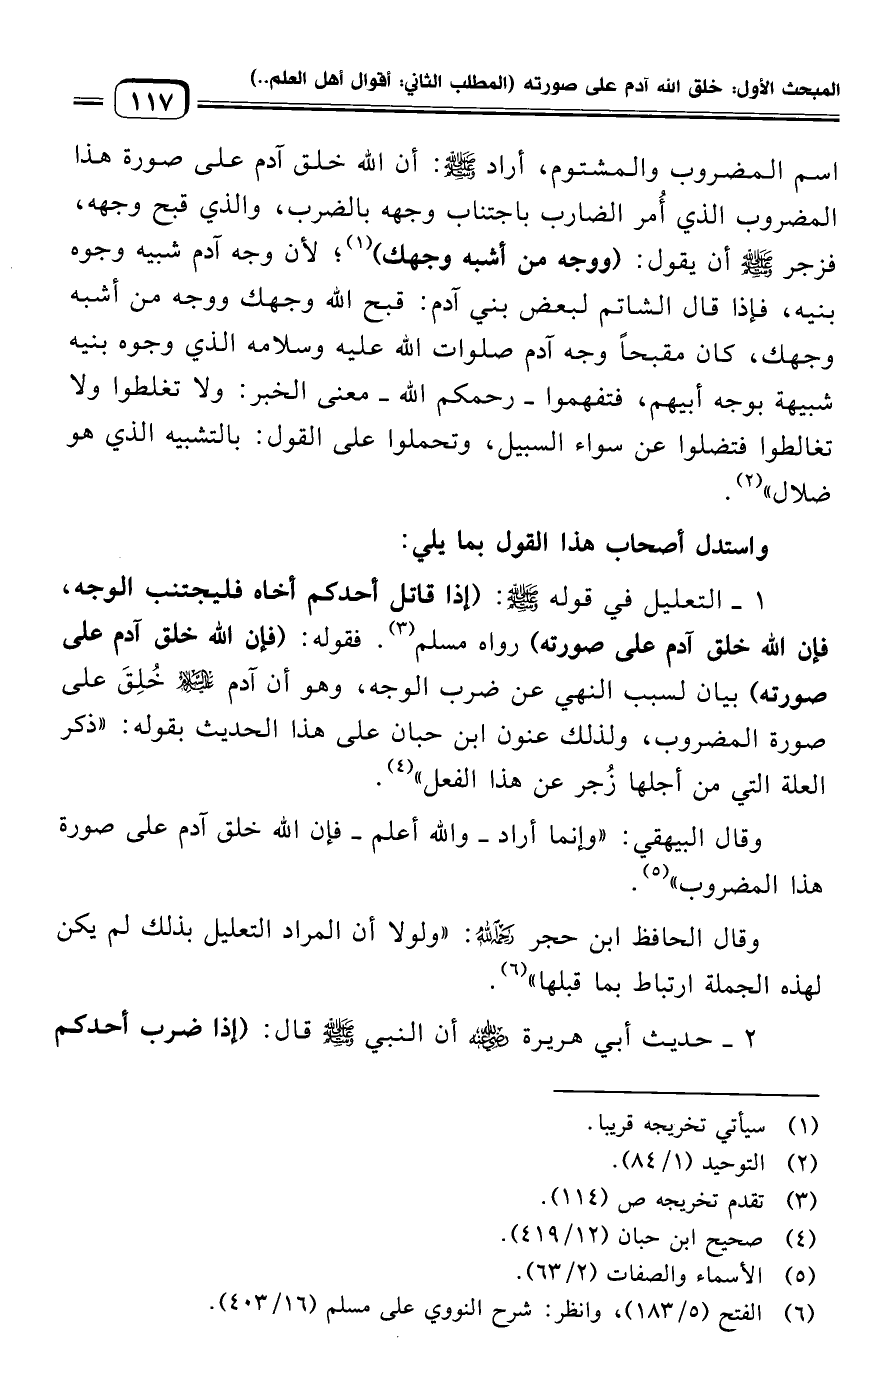 المبحث الأول: خلق الله آدم على صورته (المطلب الثاني: أقوال أهل العلم..)
١١٧
اسم المضروب والمشتوم، أراد ﷺ: أن الله خلق آدم على صورة هذا
المضروب الذي أُمر الضارب باجتناب وجهه بالضرب، والذي قبح وجهه،
فزجر ﷺ أن يقول: (ووجه من أشبه وجهك)(١)؛ لأن وجه آدم شبيه وجوه
بنيه، فإذا قال الشاتم لبعض بني آدم: قبح الله وجهك ووجه من أشبه
وجهك، كان مقبحاً وجه آدم صلوات الله عليه وسلامه الذي وجوه بنيه
شبيهة بوجه أبيهم، فتفهموا ـ رحمكم الله ـ معنى الخبر: ولا تغلطوا ولا
تغالطوا فتضلوا عن سواء السبيل، وتحملوا على القول: بالتشبيه الذي هو
ضلال»(٢).
واستدل أصحاب هذا القول بما يلي:
١ ـ التعليل في قوله ﷺ: (إذا قاتل أحدكم أخاه فليجتنب الوجه،
فإن الله خلق آدم على صورته) رواه مسلم(٣). فقوله: (فإن الله خلق آدم على
صورته) بيان لسبب النهي عن ضرب الوجه، وهو أن آدم عليه السلام خُلِقَ على
صورة المضروب، ولذلك عنون ابن حبان على هذا الحديث بقوله: «ذكر
العلة التي من أجلها زُجر عن هذا الفعل»(٤).
وقال البيهقي: «وإنما أراد ـ والله أعلم ـ فإن الله خلق آدم على صورة
هذا المضروب»(٥).
وقال الحافظ ابن حجر رحمه الله: «ولولا أن المراد التعليل بذلك لم يكن
لهذه الجملة ارتباط بما قبلها»(٦).
٢ ـ حديث أبي هريرة رضي الله عنه أن النبي ﷺ قال: (إذا ضرب أحدكم
(١) سيأتي تخريجه قريبا.
(٢) التوحيد (١/ ٨٤).
(٣) تقدم تخريجه ص (١١٤).
(٤) صحيح ابن حبان (١٢/ ٤١٩).
(٥) الأسماء والصفات (٢/ ٦٣).
(٦) الفتح (٥/ ١٨٣)، وانظر: شرح النووي على مسلم (١٦/ ٤٠٣).